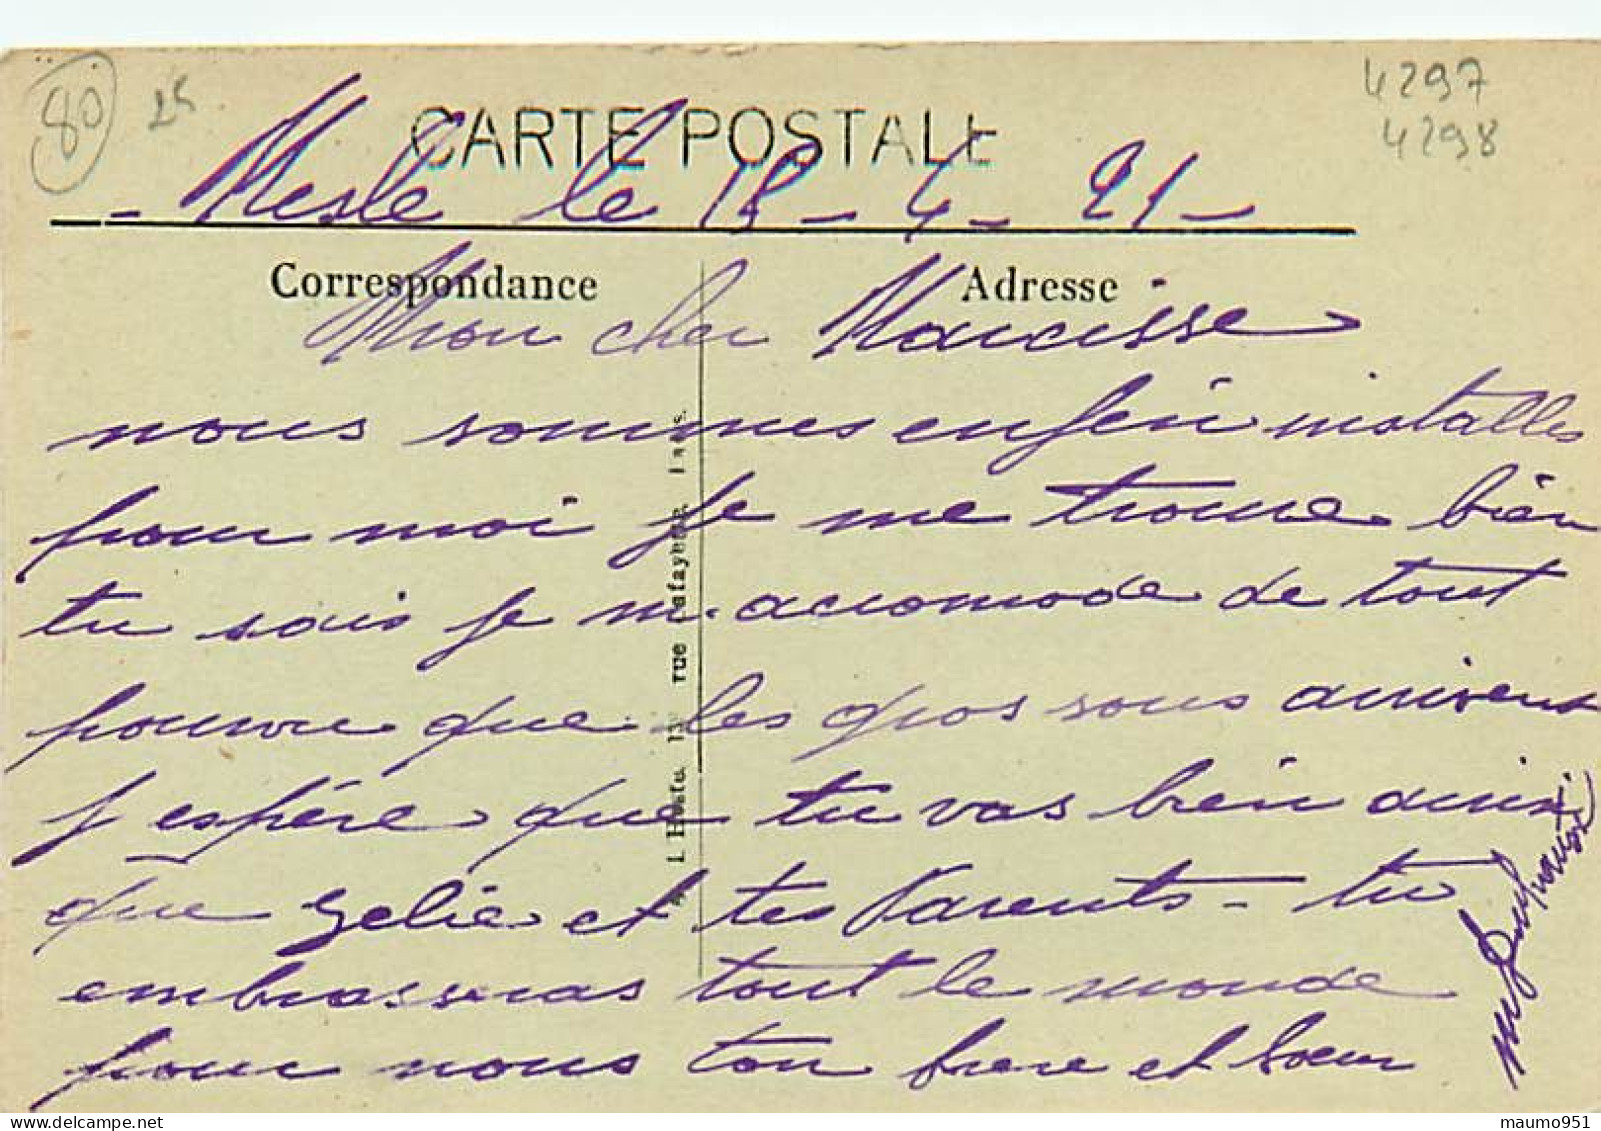 80 25
4297
4298
CARTE POSTALE
- Nesle le 18 - 4 - 21 -
Correspondance
Adresse
Mon cher Narcisse
nous sommes enfin installes
pour moi je me trouve bien
tu sais je m'accomode de tout
pourvu que les gros sous arrivent
J espére que tu vas bien ainsi
que Zelie et tes Parents - tu
embrasseras tout le monde
pour nous ton frere et Soeur
rue Lafayette
maumo951